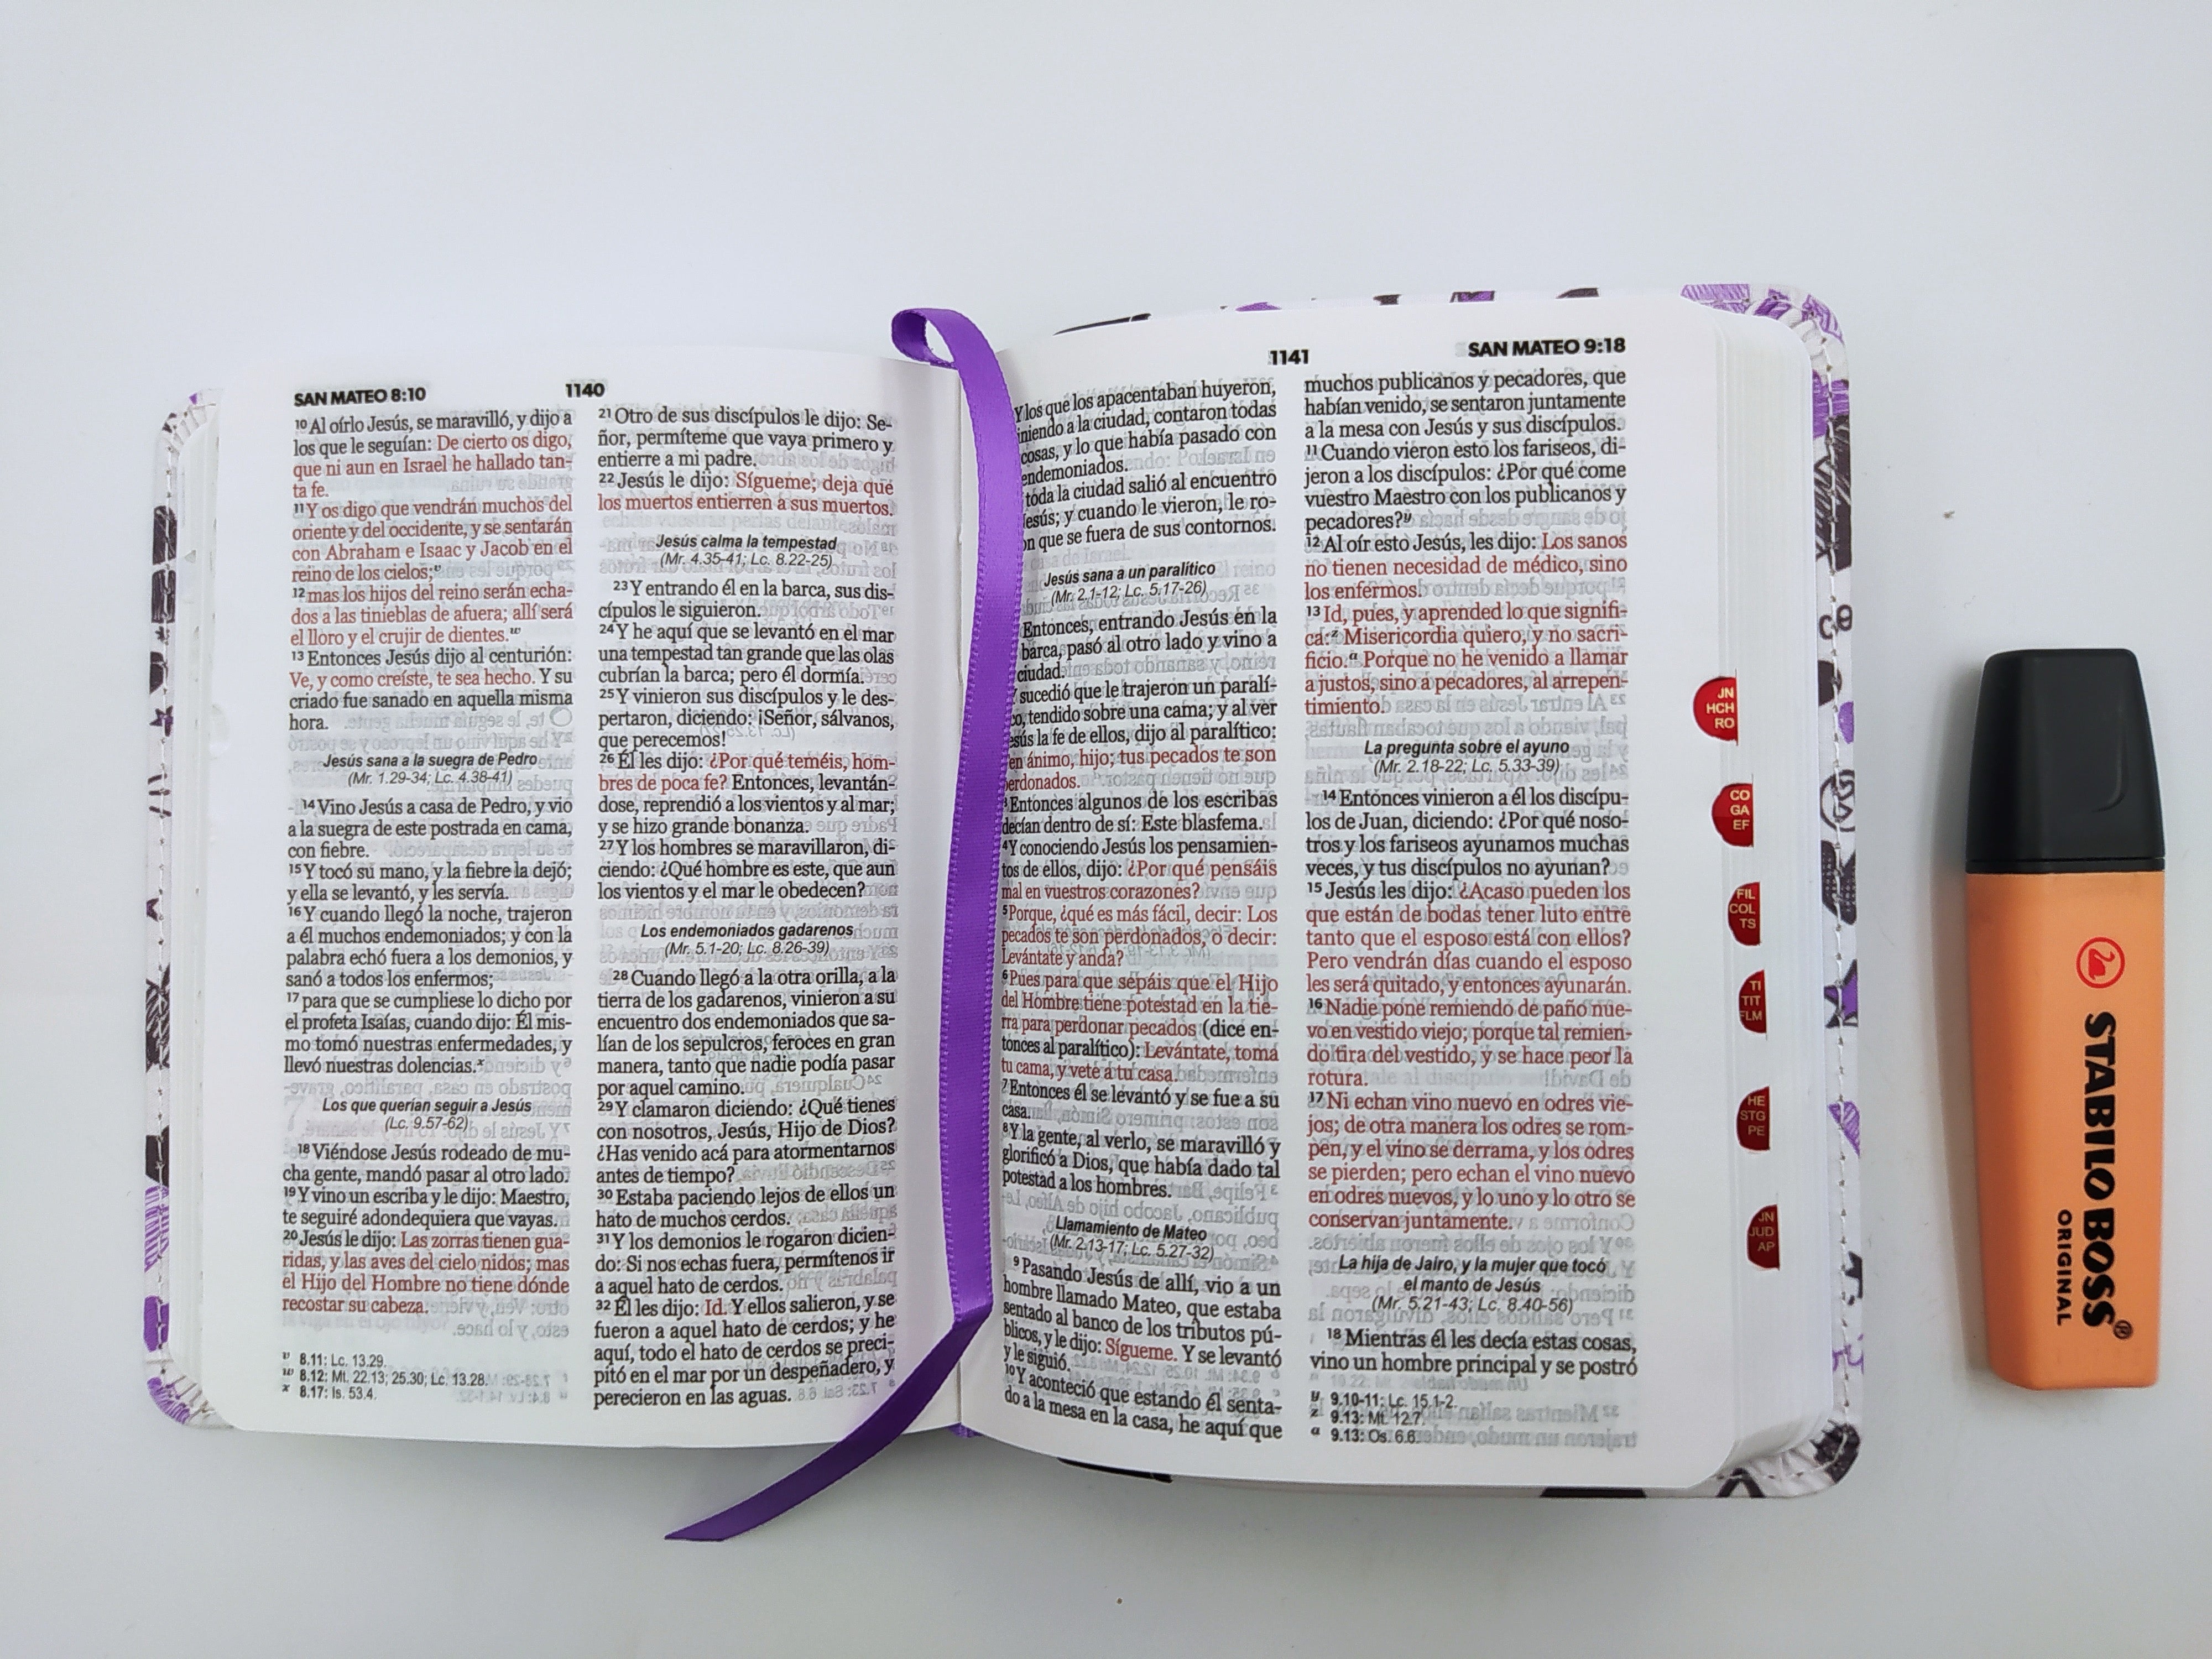 SAN MATEO 8:10
1140
10 Al oírlo Jesús, se maravilló, y dijo a
los que le seguían: De cierto os digo,
que ni aun en Israel he hallado tan-
ta fe.
11 Y os digo que vendrán muchos del
oriente y del occidente, y se sentarán
con Abraham e Isaac y Jacob en el
reino de los cielos;v
12 mas los hijos del reino serán echa-
dos a las tinieblas de afuera; allí será
el lloro y el crujir de dientes.w
13 Entonces Jesús dijo al centurión:
Ve, y como creíste, te sea hecho. Y su
criado fue sanado en aquella misma
hora.
Jesús sana a la suegra de Pedro
(Mr. 1.29-34; Lc. 4.38-41)
14 Vino Jesús a casa de Pedro, y vio
a la suegra de este postrada en cama,
con fiebre.
15 Y tocó su mano, y la fiebre la dejó;
y ella se levantó, y les servía.
16 Y cuando llegó la noche, trajeron
a él muchos endemoniados; y con la
palabra echó fuera a los demonios, y
sanó a todos los enfermos;
17 para que se cumpliese lo dicho por
el profeta Isaías, cuando dijo: Él mis-
mo tomó nuestras enfermedades, y
llevó nuestras dolencias.x
Los que querían seguir a Jesús
(Lc. 9.57-62)
18 Viéndose Jesús rodeado de mu-
cha gente, mandó pasar al otro lado.
19 Y vino un escriba y le dijo: Maestro,
te seguiré adondequiera que vayas.
20 Jesús le dijo: Las zorras tienen gua-
ridas, y las aves del cielo nidos; mas
el Hijo del Hombre no tiene dónde
recostar su cabeza.
v 8.11: Lc. 13.29.
w 8.12: Mt. 22.13; 25.30; Lc. 13.28.
x 8.17: Is. 53.4.
21 Otro de sus discípulos le dijo: Se-
ñor, permíteme que vaya primero y
entierre a mi padre.
22 Jesús le dijo: Sígueme; deja que
los muertos entierren a sus muertos.
Jesús calma la tempestad
(Mr. 4.35-41; Lc. 8.22-25)
23 Y entrando él en la barca, sus dis-
cípulos le siguieron.
24 Y he aquí que se levantó en el mar
una tempestad tan grande que las olas
cubrían la barca; pero él dormía.
25 Y vinieron sus discípulos y le des-
pertaron, diciendo: ¡Señor, sálvanos,
que perecemos!
26 Él les dijo: ¿Por qué teméis, hom-
bres de poca fe? Entonces, levantán-
dose, reprendió a los vientos y al mar;
y se hizo grande bonanza.
27 Y los hombres se maravillaron, di-
ciendo: ¿Qué hombre es este, que aun
los vientos y el mar le obedecen?
Los endemoniados gadarenos
(Mr. 5.1-20; Lc. 8.26-39)
28 Cuando llegó a la otra orilla, a la
tierra de los gadarenos, vinieron a su
encuentro dos endemoniados que sa-
lían de los sepulcros, feroces en gran
manera, tanto que nadie podía pasar
por aquel camino.
29 Y clamaron diciendo: ¿Qué tienes
con nosotros, Jesús, Hijo de Dios?
¿Has venido acá para atormentarnos
antes de tiempo?
30 Estaba paciendo lejos de ellos un
hato de muchos cerdos.
31 Y los demonios le rogaron dicien-
do: Si nos echas fuera, permítenos ir
a aquel hato de cerdos.
32 Él les dijo: Id. Y ellos salieron, y se
fueron a aquel hato de cerdos; y he
aquí, todo el hato de cerdos se preci-
pitó en el mar por un despeñadero, y
perecieron en las aguas.
1141
SAN MATEO 9:18
Y los que los apacentaban huyeron,
a la ciudad, contaron todas
cosas, y lo que había pasado con
endemoniados.
toda la ciudad salió al encuentro
Jesús; y cuando le vieron, le ro-
que se fuera de sus contornos.
Jesús sana a un paralítico
(Mr. 2.1-12; Lc. 5.17-26)
Entonces, entrando Jesús en la
barca, pasó al otro lado y vino a
ciudad.
sucedió que le trajeron un paralí-
tendido sobre una cama; y al ver
la fe de ellos, dijo al paralítico:
ánimo, hijo; tus pecados te son
3 Entonces algunos de los escribas
decían dentro de sí: Este blasfema.
4 Y conociendo Jesús los pensamien-
tos de ellos, dijo: ¿Por qué pensáis
mal en vuestros corazones?
5 Porque, ¿qué es más fácil, decir: Los
pecados te son perdonados, o decir:
Levántate y anda?
6 Pues para que sepáis que el Hijo
del Hombre tiene potestad en la tie-
rra para perdonar pecados (dice en-
tonces al paralítico): Levántate, toma
tu cama, y vete a tu casa.
7 Entonces él se levantó y se fue a su
casa.
8 Y la gente, al verlo, se maravilló y
glorificó a Dios, que había dado tal
potestad a los hombres.
Llamamiento de Mateo
(Mr. 2.13-17; Lc. 5.27-32)
9 Pasando Jesús de allí, vio a un
hombre llamado Mateo, que estaba
sentado al banco de los tributos pú-
blicos, y le dijo: Sígueme. Y se levantó
y le siguió.
10 Y aconteció que estando él senta-
do a la mesa en la casa, he aquí que
muchos publicanos y pecadores, que
habían venido, se sentaron juntamente
a la mesa con Jesús y sus discípulos.
11 Cuando vieron esto los fariseos, di-
jeron a los discípulos: ¿Por qué come
vuestro Maestro con los publicanos y
pecadores?y
12 Al oír esto Jesús, les dijo: Los sanos
no tienen necesidad de médico, sino
los enfermos.
13 Id, pues, y aprended lo que signifi-
ca:z Misericordia quiero, y no sacri-
ficio.a Porque no he venido a llamar
a justos, sino a pecadores, al arrepen-
timiento.
La pregunta sobre el ayuno
(Mr. 2.18-22; Lc. 5.33-39)
14 Entonces vinieron a él los discípu-
los de Juan, diciendo: ¿Por qué noso-
tros y los fariseos ayunamos muchas
veces, y tus discípulos no ayunan?
15 Jesús les dijo: ¿Acaso pueden los
que están de bodas tener luto entre
tanto que el esposo está con ellos?
Pero vendrán días cuando el esposo
les será quitado, y entonces ayunarán.
16 Nadie pone remiendo de paño nue-
vo en vestido viejo; porque tal remien-
do tira del vestido, y se hace peor la
rotura.
17 Ni echan vino nuevo en odres vie-
jos; de otra manera los odres se rom-
pen, y el vino se derrama, y los odres
se pierden; pero echan el vino nuevo
en odres nuevos, y lo uno y lo otro se
conservan juntamente.
La hija de Jairo, y la mujer que tocó
el manto de Jesús
(Mr. 5.21-43; Lc. 8.40-56)
18 Mientras él les decía estas cosas,
vino un hombre principal y se postró
y 9.10-11: Lc. 15.1-2.
z 9.13: Mt. 12.7.
a 9.13: Os. 6.6.
JN
HCH
RO
CO
GA
EF
FIL
COL
TS
TI
TIT
FLM
HE
STG
PE
JN
JUD
AP
STABILO BOSS®
ORIGINAL